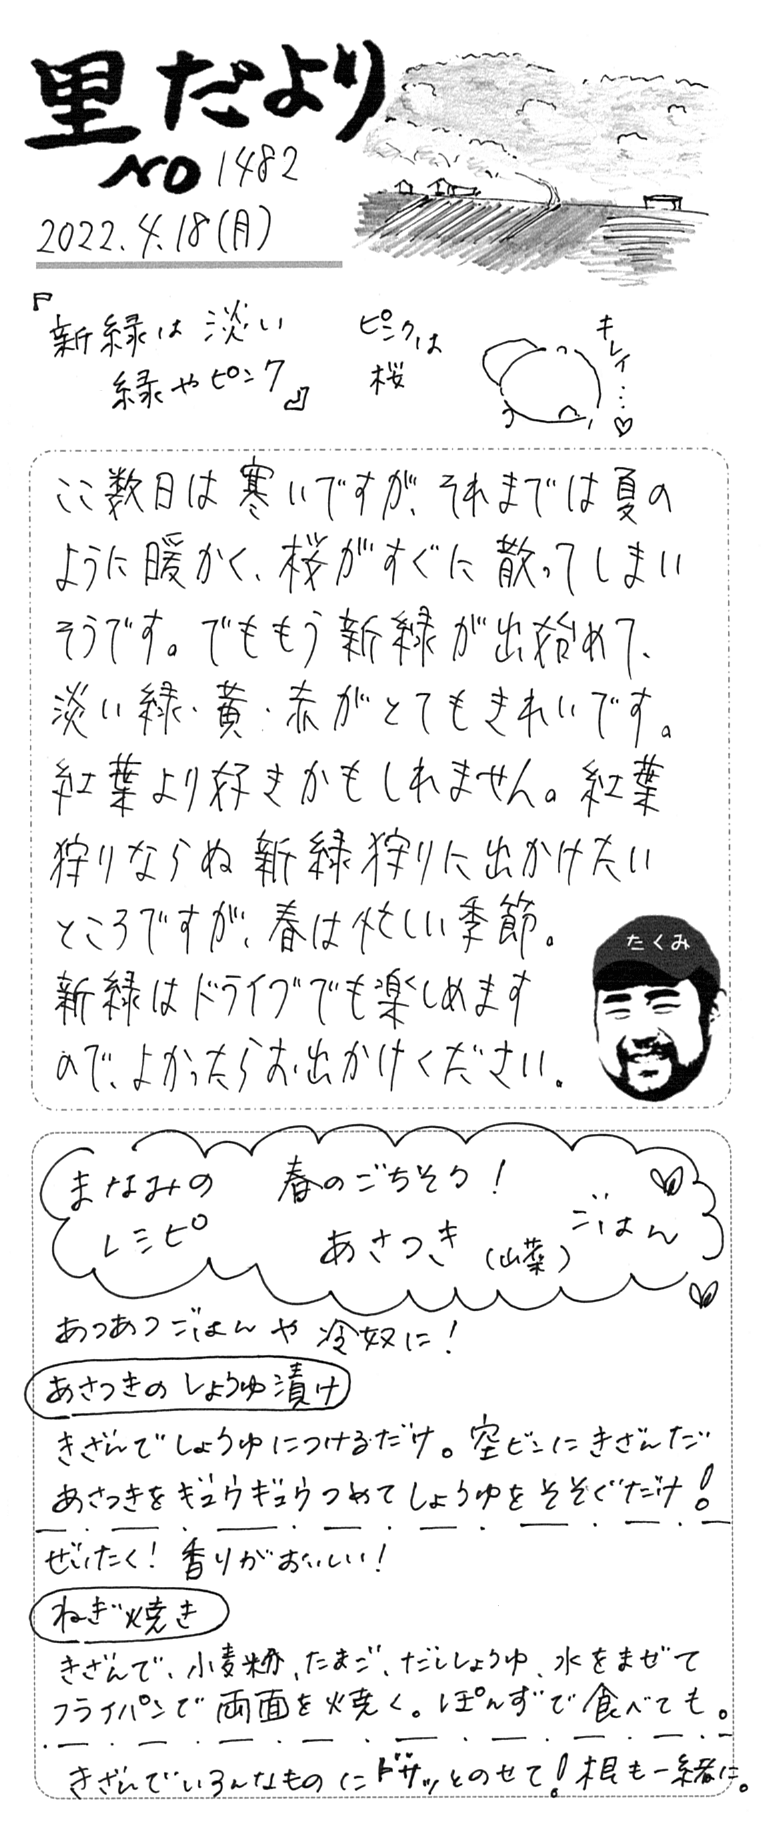 里だより
NO 1482
2022.4.18(月)
『新緑は淡い
緑やピンク』
ピンクは
桜
キレイ…♡
ここ数日は寒いですが、それまでは夏の
ように暖かく、桜がすぐに散ってしまい
そうです。でももう新緑が出始めて、
淡い緑・黄・赤がとてもきれいです。
紅葉より好きかもしれません。紅葉
狩りならぬ新緑狩りに出かけたい
ところですが、春は忙しい季節。
新緑はドライブでも楽しめます
ので、よかったらお出かけください。
たくみ
まなみの
レシピ
春のごちそう!
あさつき(山菜)ごはん
あつあつごはんや冷奴に!
あさつきのしょうゆ漬け
きざんでしょうゆにつけるだけ。空ビンにきざんだ
あさつきをギュウギュウつめてしょうゆをそそぐだけ!
ぜいたく!香りがおいしい!
ねぎ焼き
きざんで、小麦粉、たまご、だししょうゆ、水をまぜて
フライパンで両面を焼く。ぽんずで食べても。
きざんでいろんなものにドサッとのせて!根も一緒に。